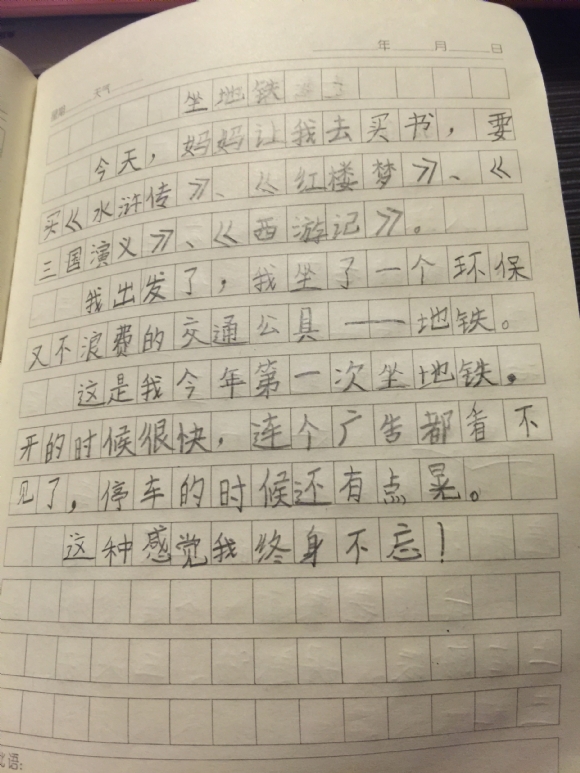 年 月 日
天气
坐地铁
今天，妈妈让我去买书，要
买《水浒传》、《红楼梦》、《
三国演义》、《西游记》。
我出发了，我坐了一个环保
又不浪费的交通公具——地铁。
这是我今年第一次坐地铁。
开的时候很快，连个广告都看不
见了，停车的时候还有点晃。
这种感觉我终身不忘！